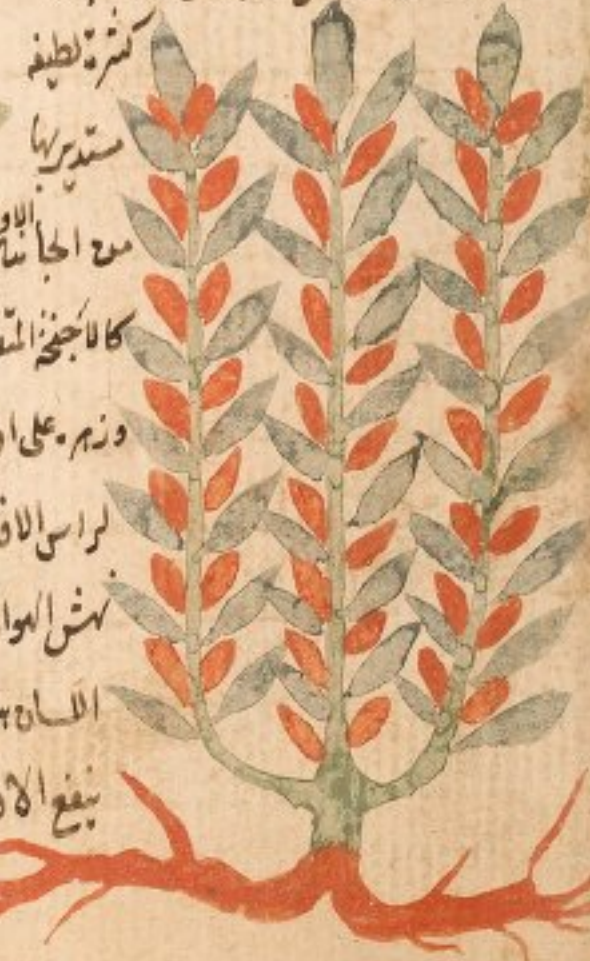 كثيرة لطيفه
مستديرها
من الجانب
كالاجنحة
وزهره على
لراس الاف
نهش الهوا
اللسان
ينفع الا